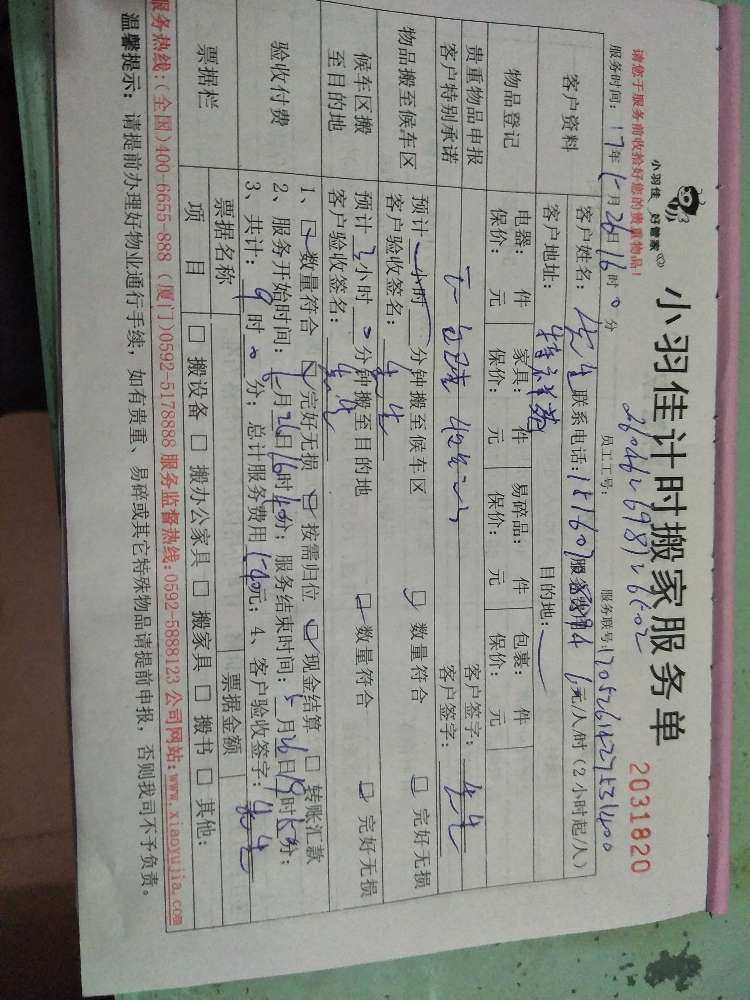 小羽佳 好管家
小羽佳计时搬家服务单
2031820
请您于服务前收拾好您的贵重物品!
员工工号:
服务联号:
服务时间: 17年 5月 26日 16时 0分
客户资料
客户姓名: 联系电话: 服务费用 元/人/时 (2小时起/人)
客户地址: 目的地:
物品登记
电器: 件 家具: 件 易碎品: 件 包裹: 件
保价: 元 保价: 元 保价: 元 保价: 元
贵重物品申报 客户签字:
客户特别承诺 客户签字:
物品搬至候车区
预计 小时 分钟搬至候车区 数量符合 完好无损
客户验收签名:
候车区搬至目的地
预计 3小时 0分钟搬至目的地 数量符合 完好无损
客户验收签名:
验收付费
1、 数量符合 完好无损 按需归位 现金结算 转账汇款
2、服务开始时间: 月26日16时 分; 服务结束时间: 5月26日19时 分;
3、共计: 9时0分; 总计服务费用 元; 4、客户验收签字:
票据栏
票据名称 票据金额
项目 搬设备 搬办公家具 搬家具 搬书 其他:
服务热线:(全国)400-6655-888 (厦门)0592-5178888 服务监督热线:0592-5888123 公司网站:www.xiaoyujia.com
温馨提示: 请提前办理好物业通行手续, 如有贵重、易碎或其它特殊物品请提前申报, 否则我司不予负责。